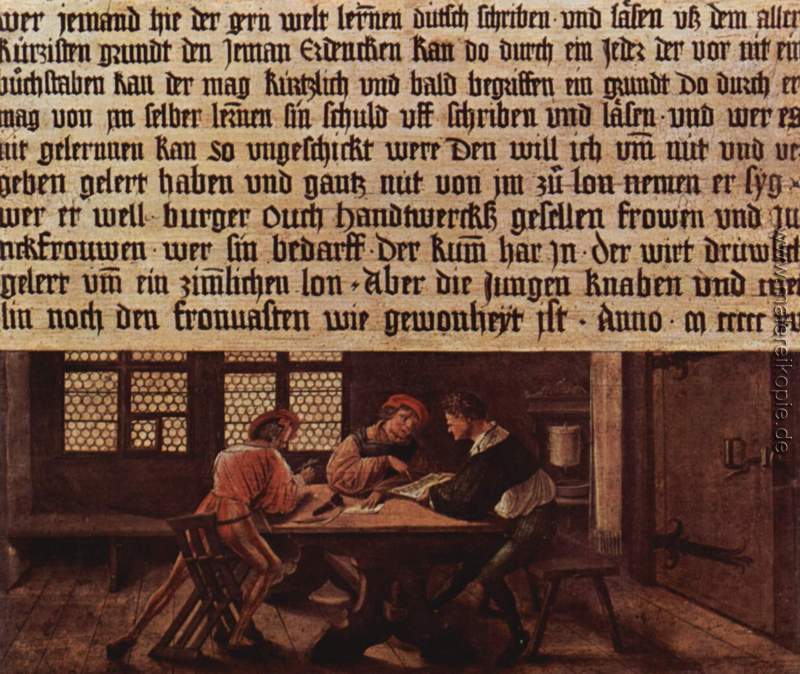 wer jemand hie der gern welt lernen dütsch schriben · vnd läsen vß dem aller
kürtzisten grundt den Jeman Erdencken kan do durch ein jeder der vor nit ein
bůchstaben kan der mag kürtzlich vnd bald begriffen ein grundt do durch er
mag von jm selber lernen sin schuld vff schriben vnd läsen · vnd wer es
nit gelernnen kan so vngeschickt were Den will ich vm̄ nüt vnd ver
geben gelert haben vnd gantz nüt von jm zů lon nemen er syg
wer er well · burger ouch handtwerckß gesellen frowen vnd ju
nckfrouwen · wer sin bedarff · Der kum̄ har jn · der wirt drüwlich
gelert vm̄ ein zim̄lichen lon · Aber die jungen knaben vnd meit
lin noch den fronuasten wie gewonheyt ist · Anno · m ccccc xv
www.malereikopie.de